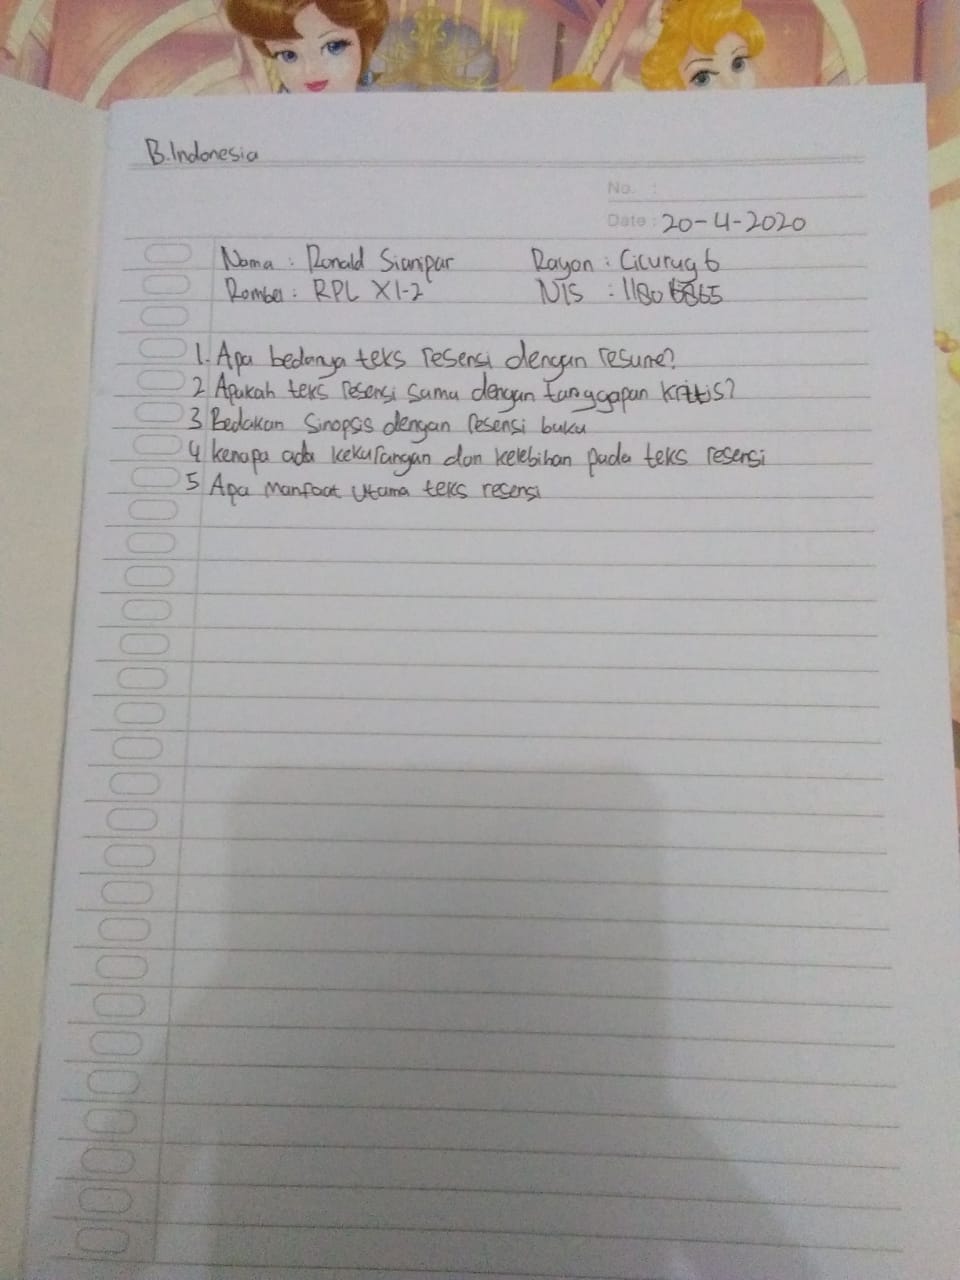 B.Indonesia
No. :
Date : 20-4-2020
Nama : Ronald Sianipar Rayon : Cicurug 6
Rombel : RPL XI-2 NIS :
1. Apa bedanya teks resensi dengan resume?
2 Apakah teks resensi sama dengan tanggapan kritis?
3 Bedakan Sinopsis dengan resensi buku
4 kenapa ada kekurangan dan kelebihan pada teks resensi
5 Apa Manfaat Utama teks resensi